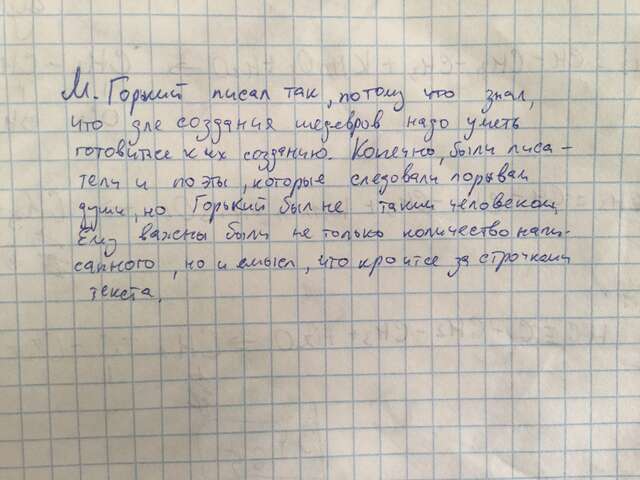 М. Горький писал так, потому что знал,
что для создания шедевров надо уметь
готовится к их созданию. Конечно, были писа-
тели и поэты, которые следовали порывам
души, но Горький был не таким человеком,
Ему важны были не только количество напи-
санного, но и смысл, что кроится за строчками
текста.